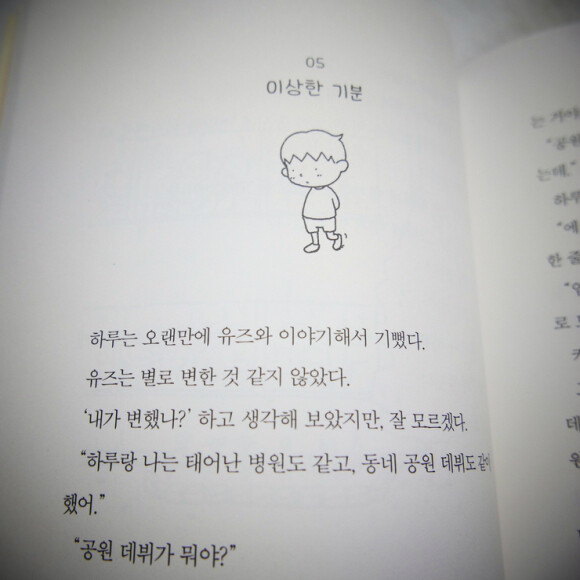 05
이상한 기분
하루는 오랜만에 유즈와 이야기해서 기뻤다.
유즈는 별로 변한 것 같지 않았다.
‘내가 변했나?’ 하고 생각해 보았지만, 잘 모르겠다.
“하루랑 나는 태어난 병원도 같고, 동네 공원 데뷔도 같이
했어.”
“공원 데뷔가 뭐야?”
는 거야
“공원
는데.”
하루
“에
한 줄
로 모
데
원